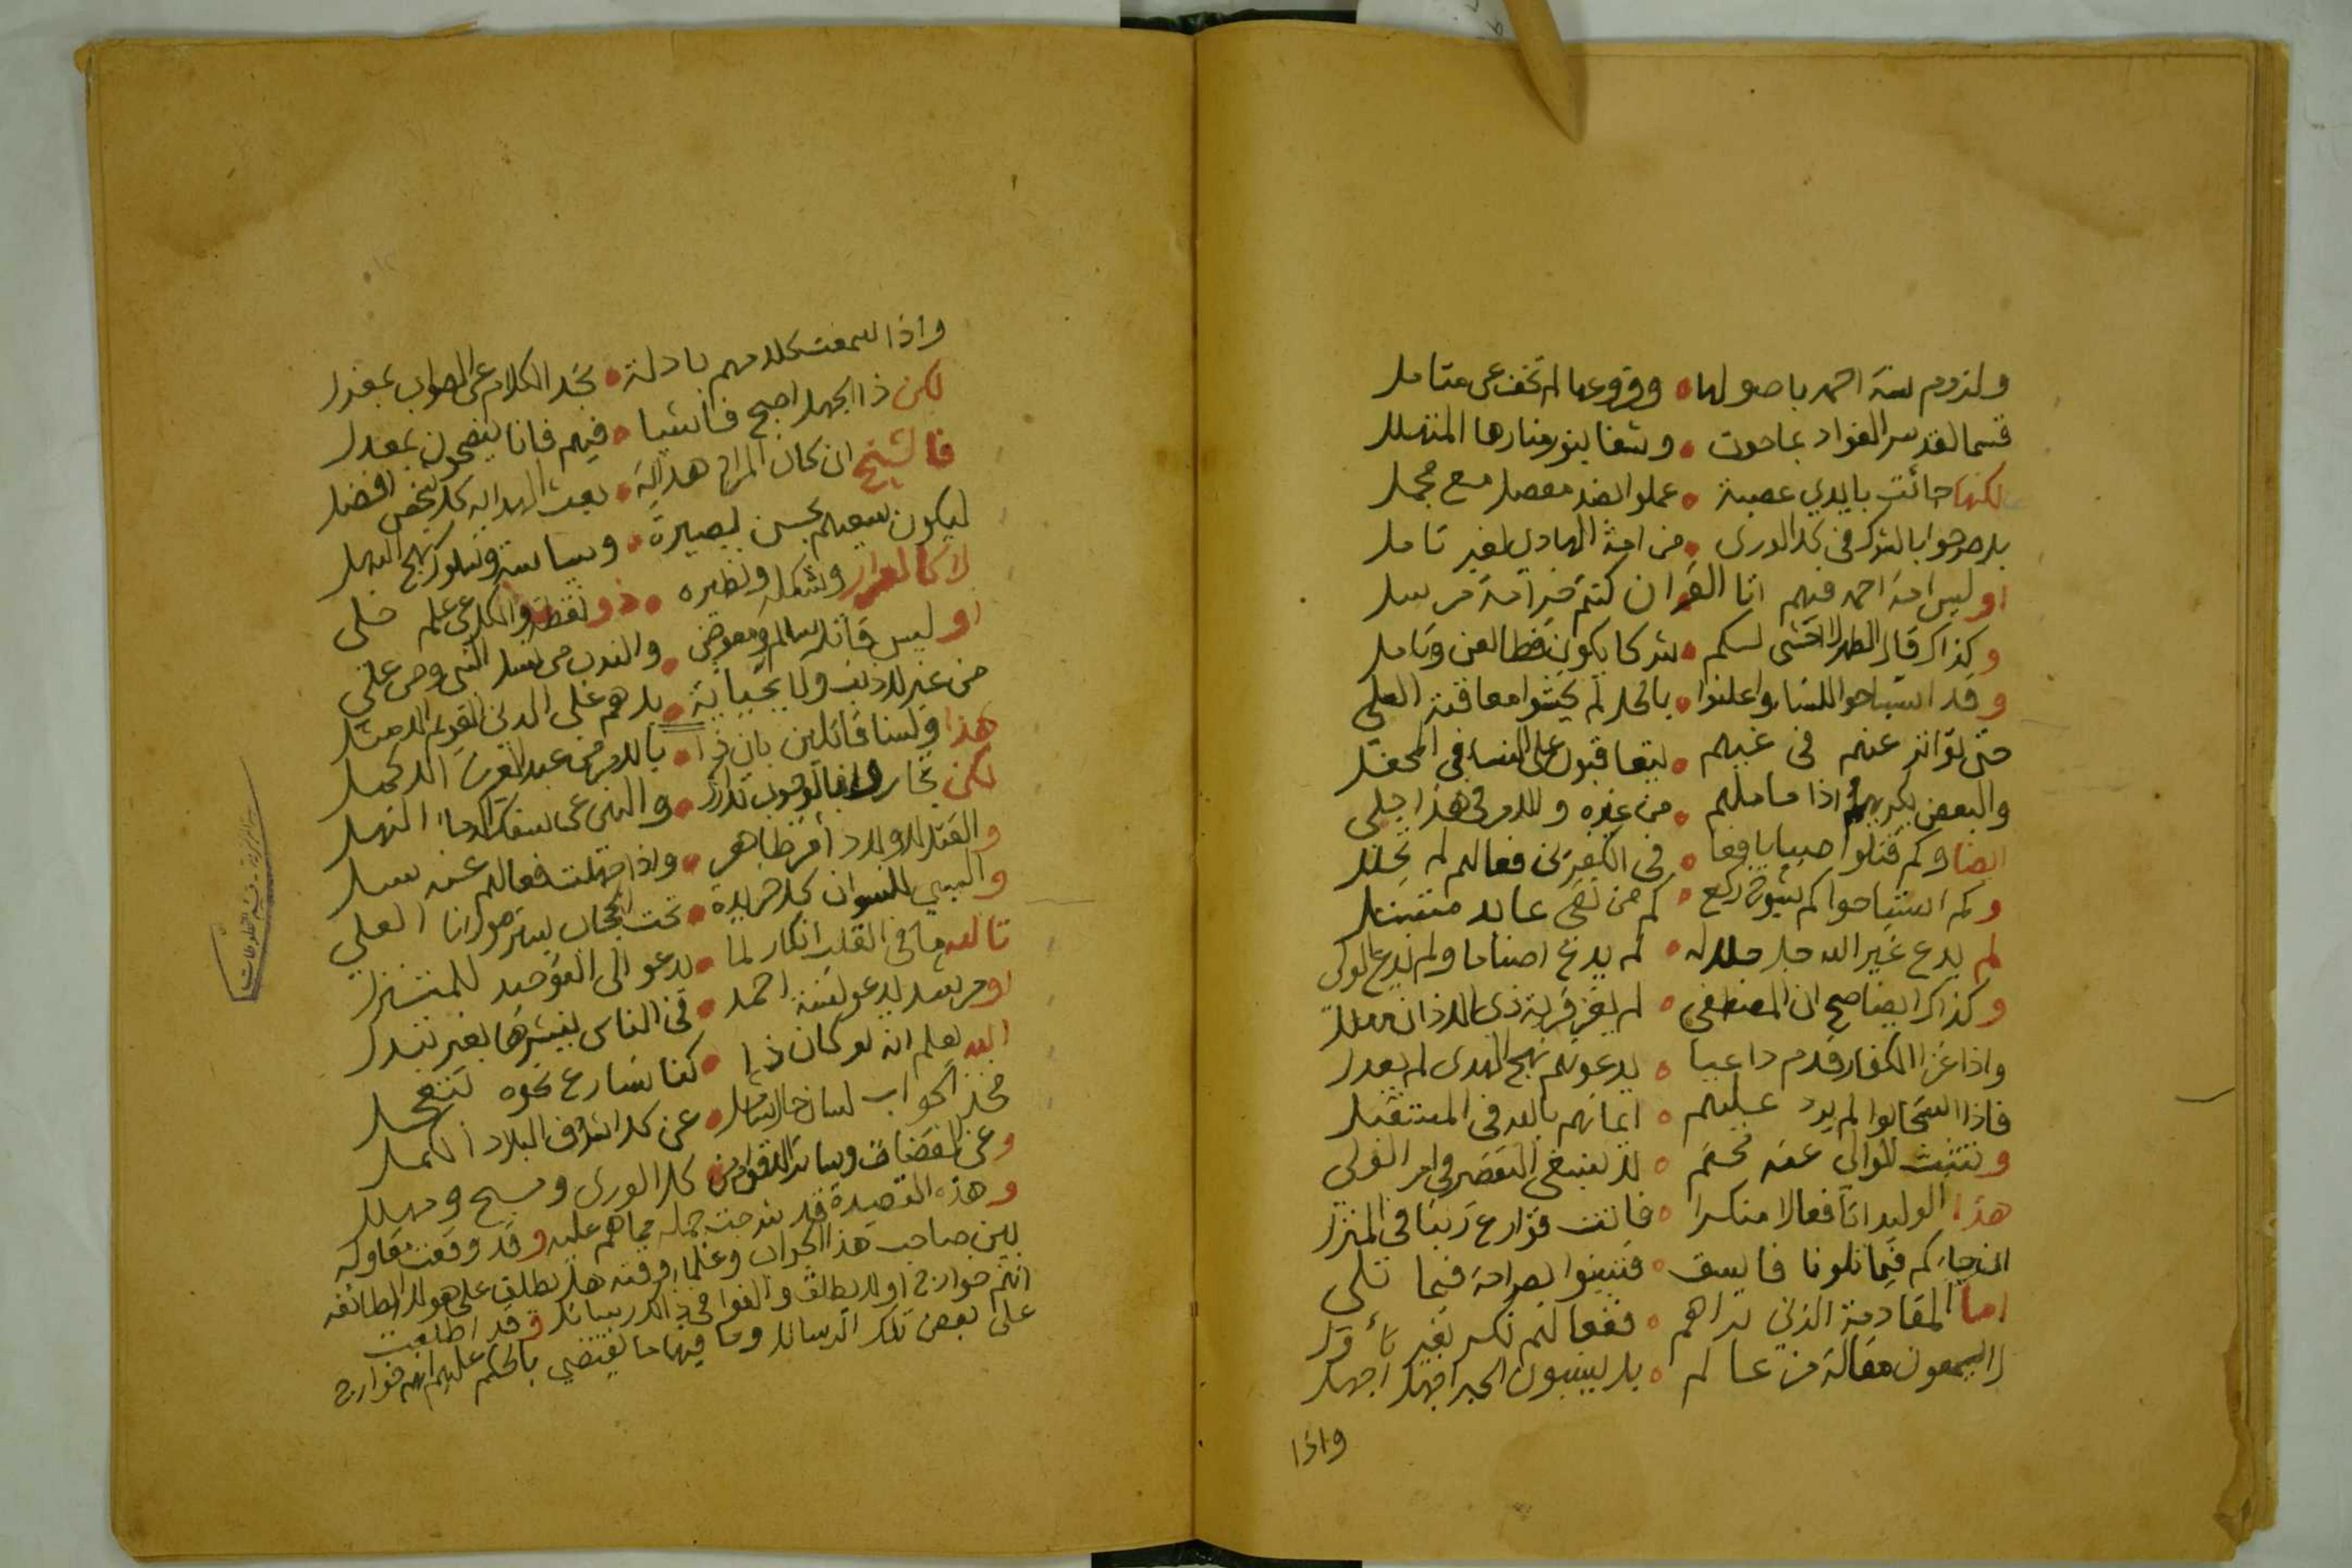 ولزوم سنة احمد باصولها • وفروعها لم تخف عن متامل
قسما لقد سر الفواد بما حوت • وشفا بنور منارها المتهلل
لكنها جائت بايدي عصبة • عملوا بضد مفصل مع مجمل
بل صرحوا بالشرك في كل الورى • من امة الهادي بغير تامل
او ليس امة احمد فيهم اتا القران كنتم خير امة مرسل
وكذاك قال الطهر لا اخشى لكم • شركا يكون
وقد استباحوا للنسا واعلنوا • بالحل لم يخشوا معاقبة العلي
حتى تواتر عنهم في غيهم • يتعاقبون على النسا في المحفل
والبعض اذا ما ملهم • من غيره وللامر في هذا جلي
ايضا وكم قتلوا صبيا يافعا • في فعالهم لم تجلل
وكم استباحوا كم شيوخ ركع • كم من تقي عابد متبتل
لم يدع غير الله جل جلاله • لم يدع اصناما ولم يدع الولي
وكذاك ايضا صح ان المصطفى • لم يغز قرية ذي الاذان
واذا غزا الكفار قدم داعيا • يدعوهم نهج الهدى لم يعدل
فاذا استجابوا لم يرد عليهم • ايمانهم بالله في المستقبل
وتثبت للوالي عنه محتم • لا ينبغي التقصير في امر الولي
هذا الوليد اتا فعالا منكرا • فاتت قوارع ربنا في المنزل
ان جاءكم فيما تلونا فاسق • فتبينوا بصراحة فيما تلي
اما المقادمة الذين تراهم • ففعالهم نكر بغير تأول
لا يسمعون مقالة من عالم • بل ينسبون الحبر اجهل
واذا
واذا سمعت كلامهم بادلة • تجد الكلام عن الصواب بمعزل
لكن ذا الجهل اصبح فاشيا • فيهم فانا ينصحون بمعدل
فالشيخ ان كان المراد هداية • بعث الهداية كل شخص افضل
ليكون سعيهم بحسن بصيرة • وسياسة وسلوك نهج
وشكله ونظيره • ذو
او ليس قاتل سالم ومعوض • والندب من نسل النبي ومن علي
من غير لا ذنب ولا بجناية • بل هم على الدين القويم الامثل
هذا ولسنا قائلين بان ذا • بالامر من عبد العزيز الاكمل
لكن
والقتل للاولاد أمر ظاهر • واذا جهلت فعالهم عنه سل
والسبي للنسوان كل خريدة • تحت الحجاب
تالله ما في القلب انكار لما • يدعو الى التوحيد للمتنزل
او مرسل يدعو لسنة احمد • في الناس ينشرها بغير تبدل
الله يعلم انه لو كان ذا • كنا نسارع نحوه
فخذ الجواب لسان حال • عن كل اشراف البلاد
وعن القضاة وسائر • كل الورى ومسبح ومهلل
وهذه القصيدة قد شرحت جملة مما هم عليه وقد وقعت مقاولة
بين صاحب هذا الجواب وعلماء وقته هل يطلق على هولا الطائفة
انهم خوارج او لا يطلق والفوا في ذالك رسائل وقد اطلعت
على بعض تلك الرسائل وما فيها ما يقتضي بالحكم عليهم انهم خوارج